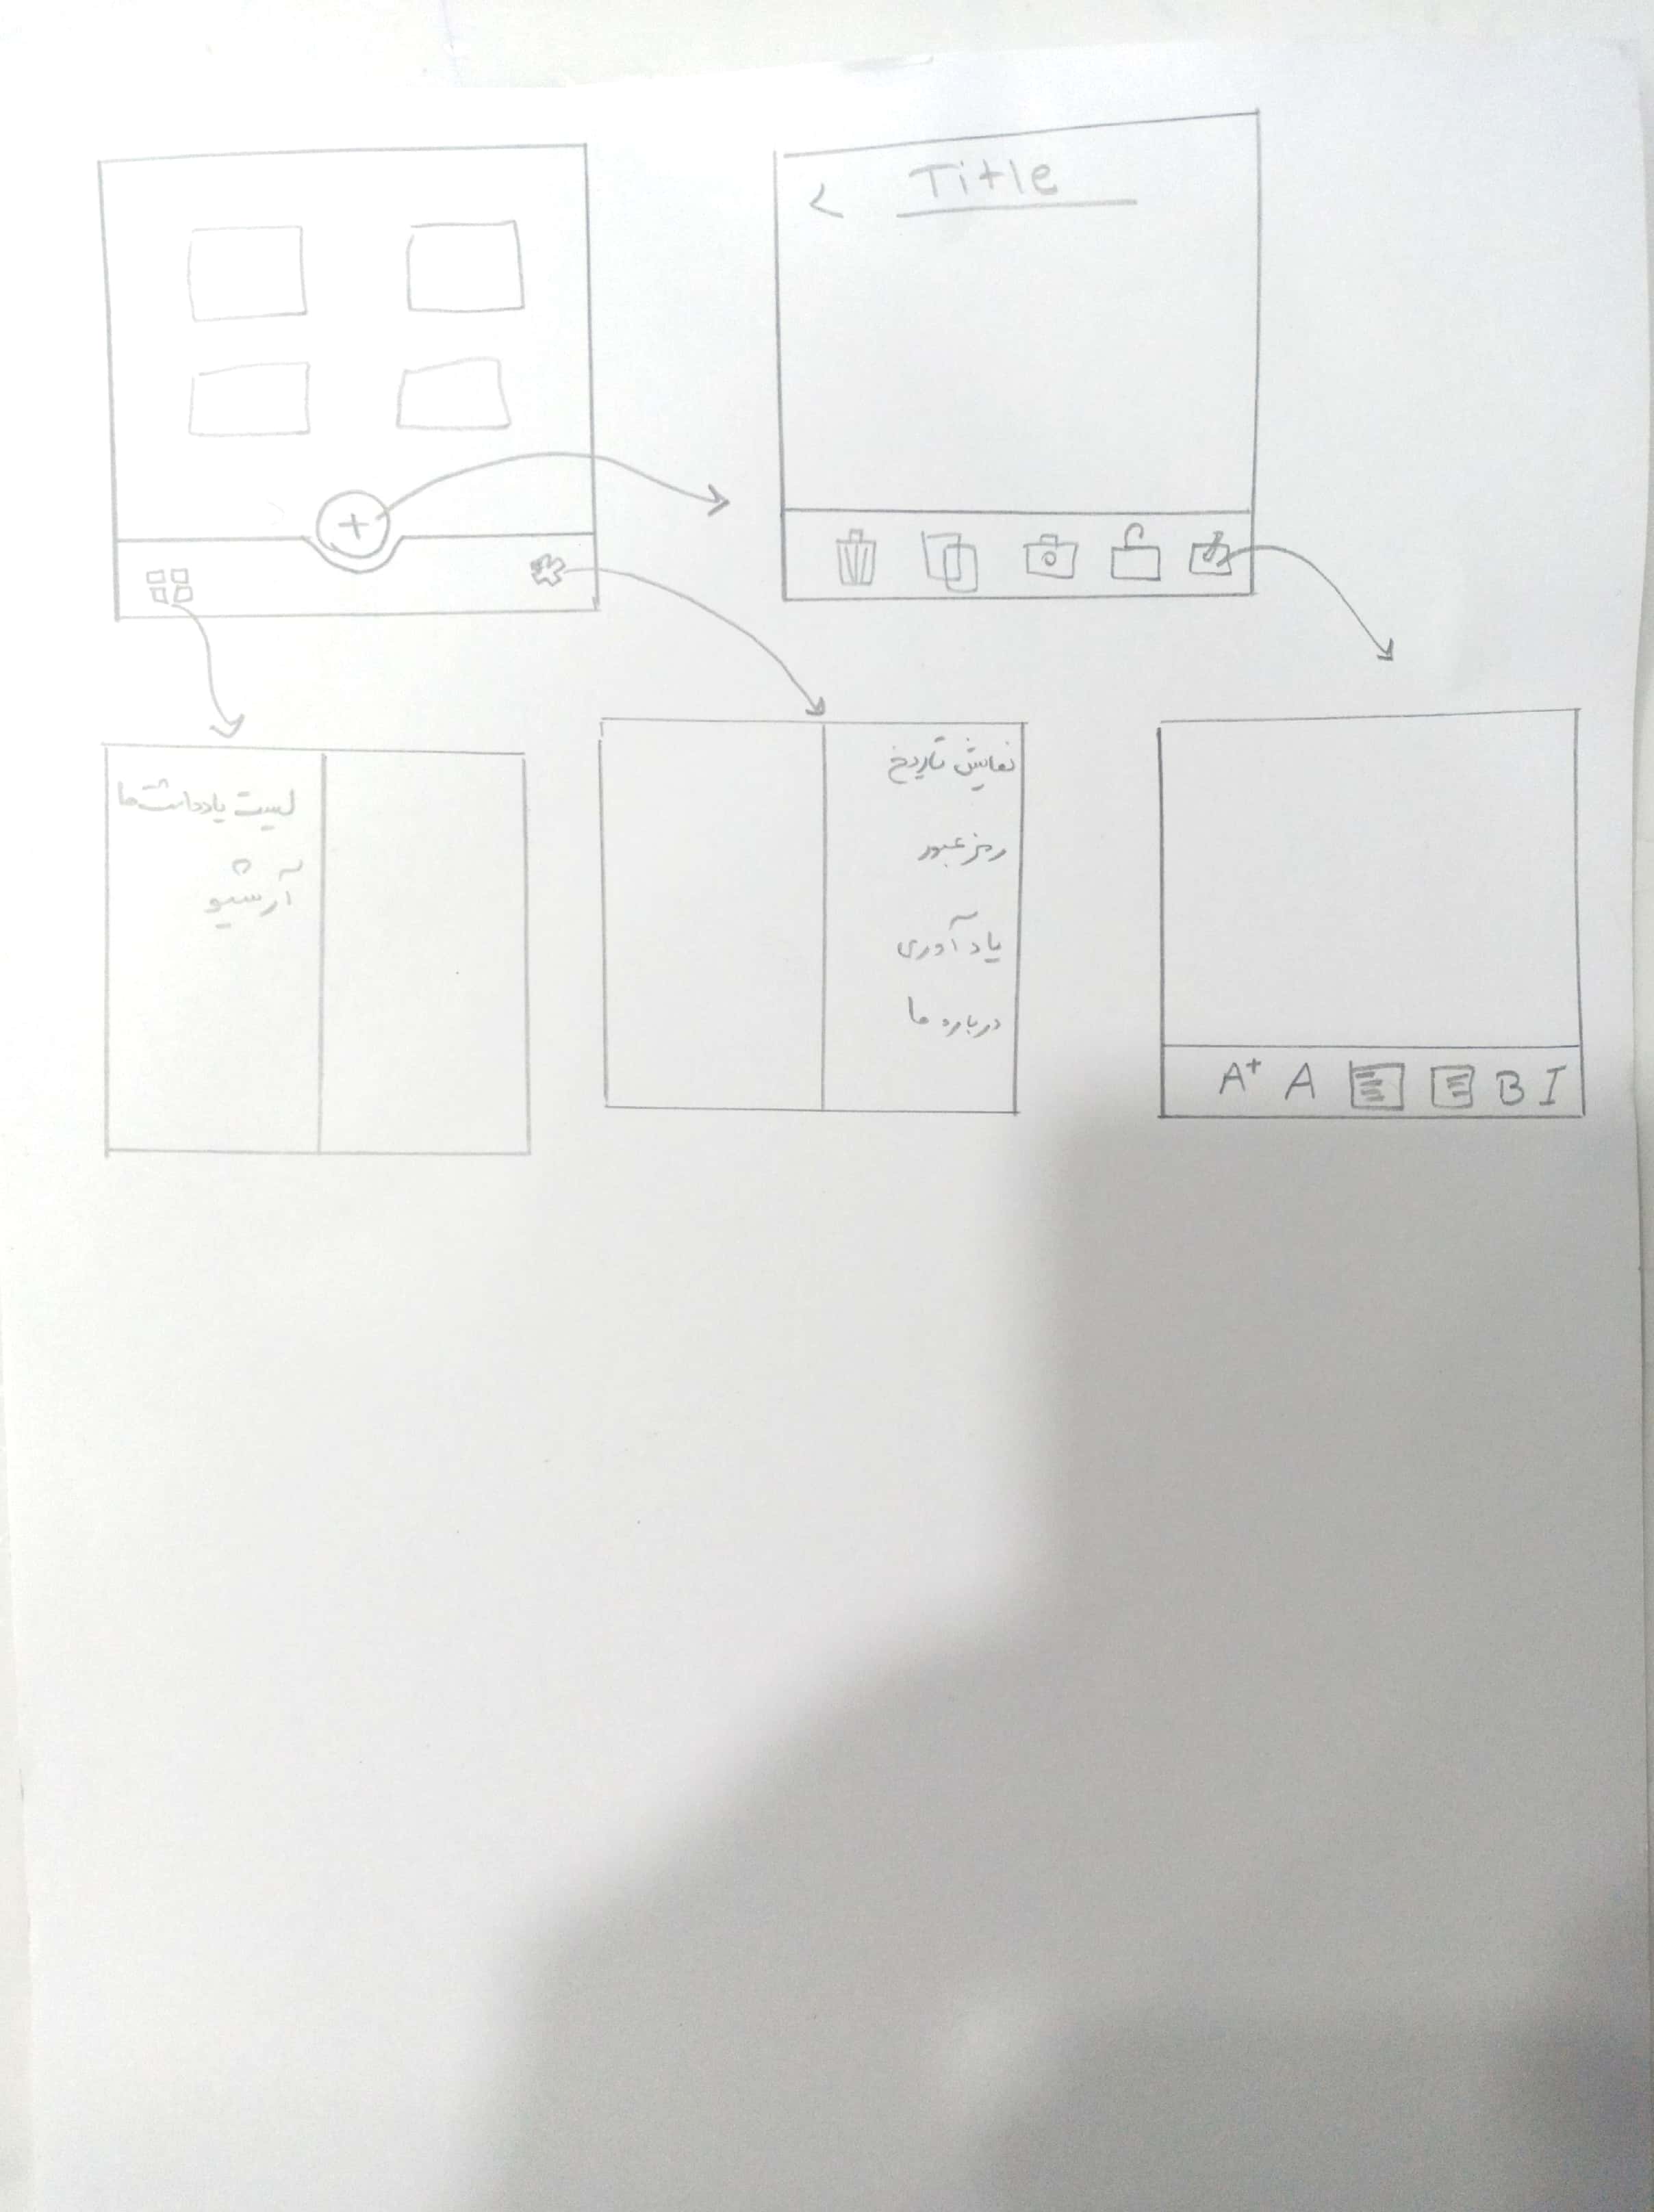 Title
لیست یادداشت‌ها
آرشیو
نمایش تاریخ
رمز عبور
یادآوری
درباره ما
A+ A B I